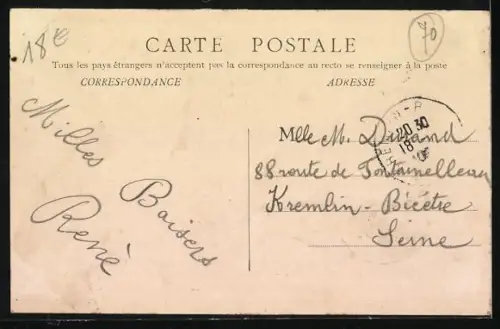 18€
70
CARTE POSTALE
Tous les pays étrangers n'acceptent pas la correspondance au recto se renseigner à la poste
CORRESPONDANCE
ADRESSE
Milles
Baisers
René
Mlle M. Durand
88 route de Fontainebleau
Kremlin-Bicêtre
Seine
20 30
18